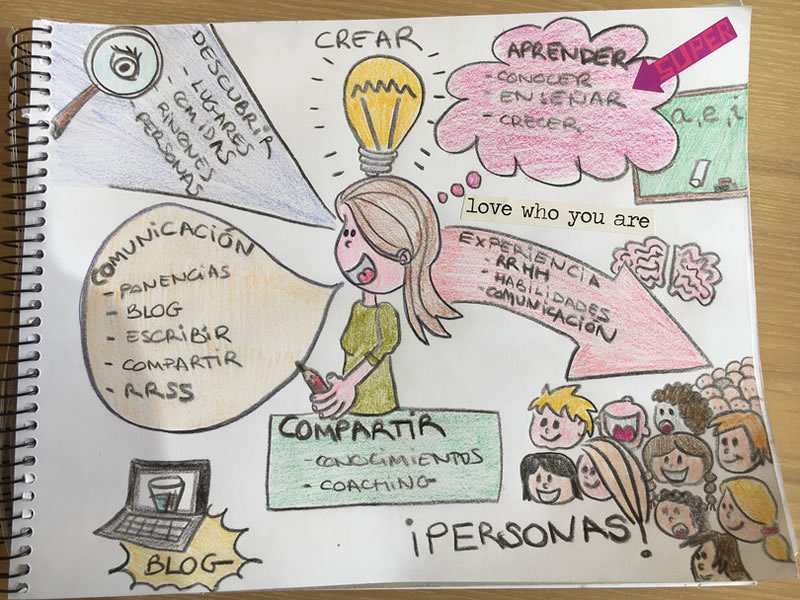 DESCUBRIR
- LUGARES
- COMIDAS
- RINCONES
- PERSONAS
CREAR
APRENDER
- CONOCER
- ENSEÑAR
- CRECER
SUPER
a, e, i
love who you are
COMUNICACIÓN
- PONENCIAS
- BLOG
- ESCRIBIR
- COMPARTIR
- RRSS
EXPERIENCIA
- RRHH
- HABILIDADES
- COMUNICACIÓN
COMPARTIR
- CONOCIMIENTOS
- COACHING
BLOG
¡PERSONAS!